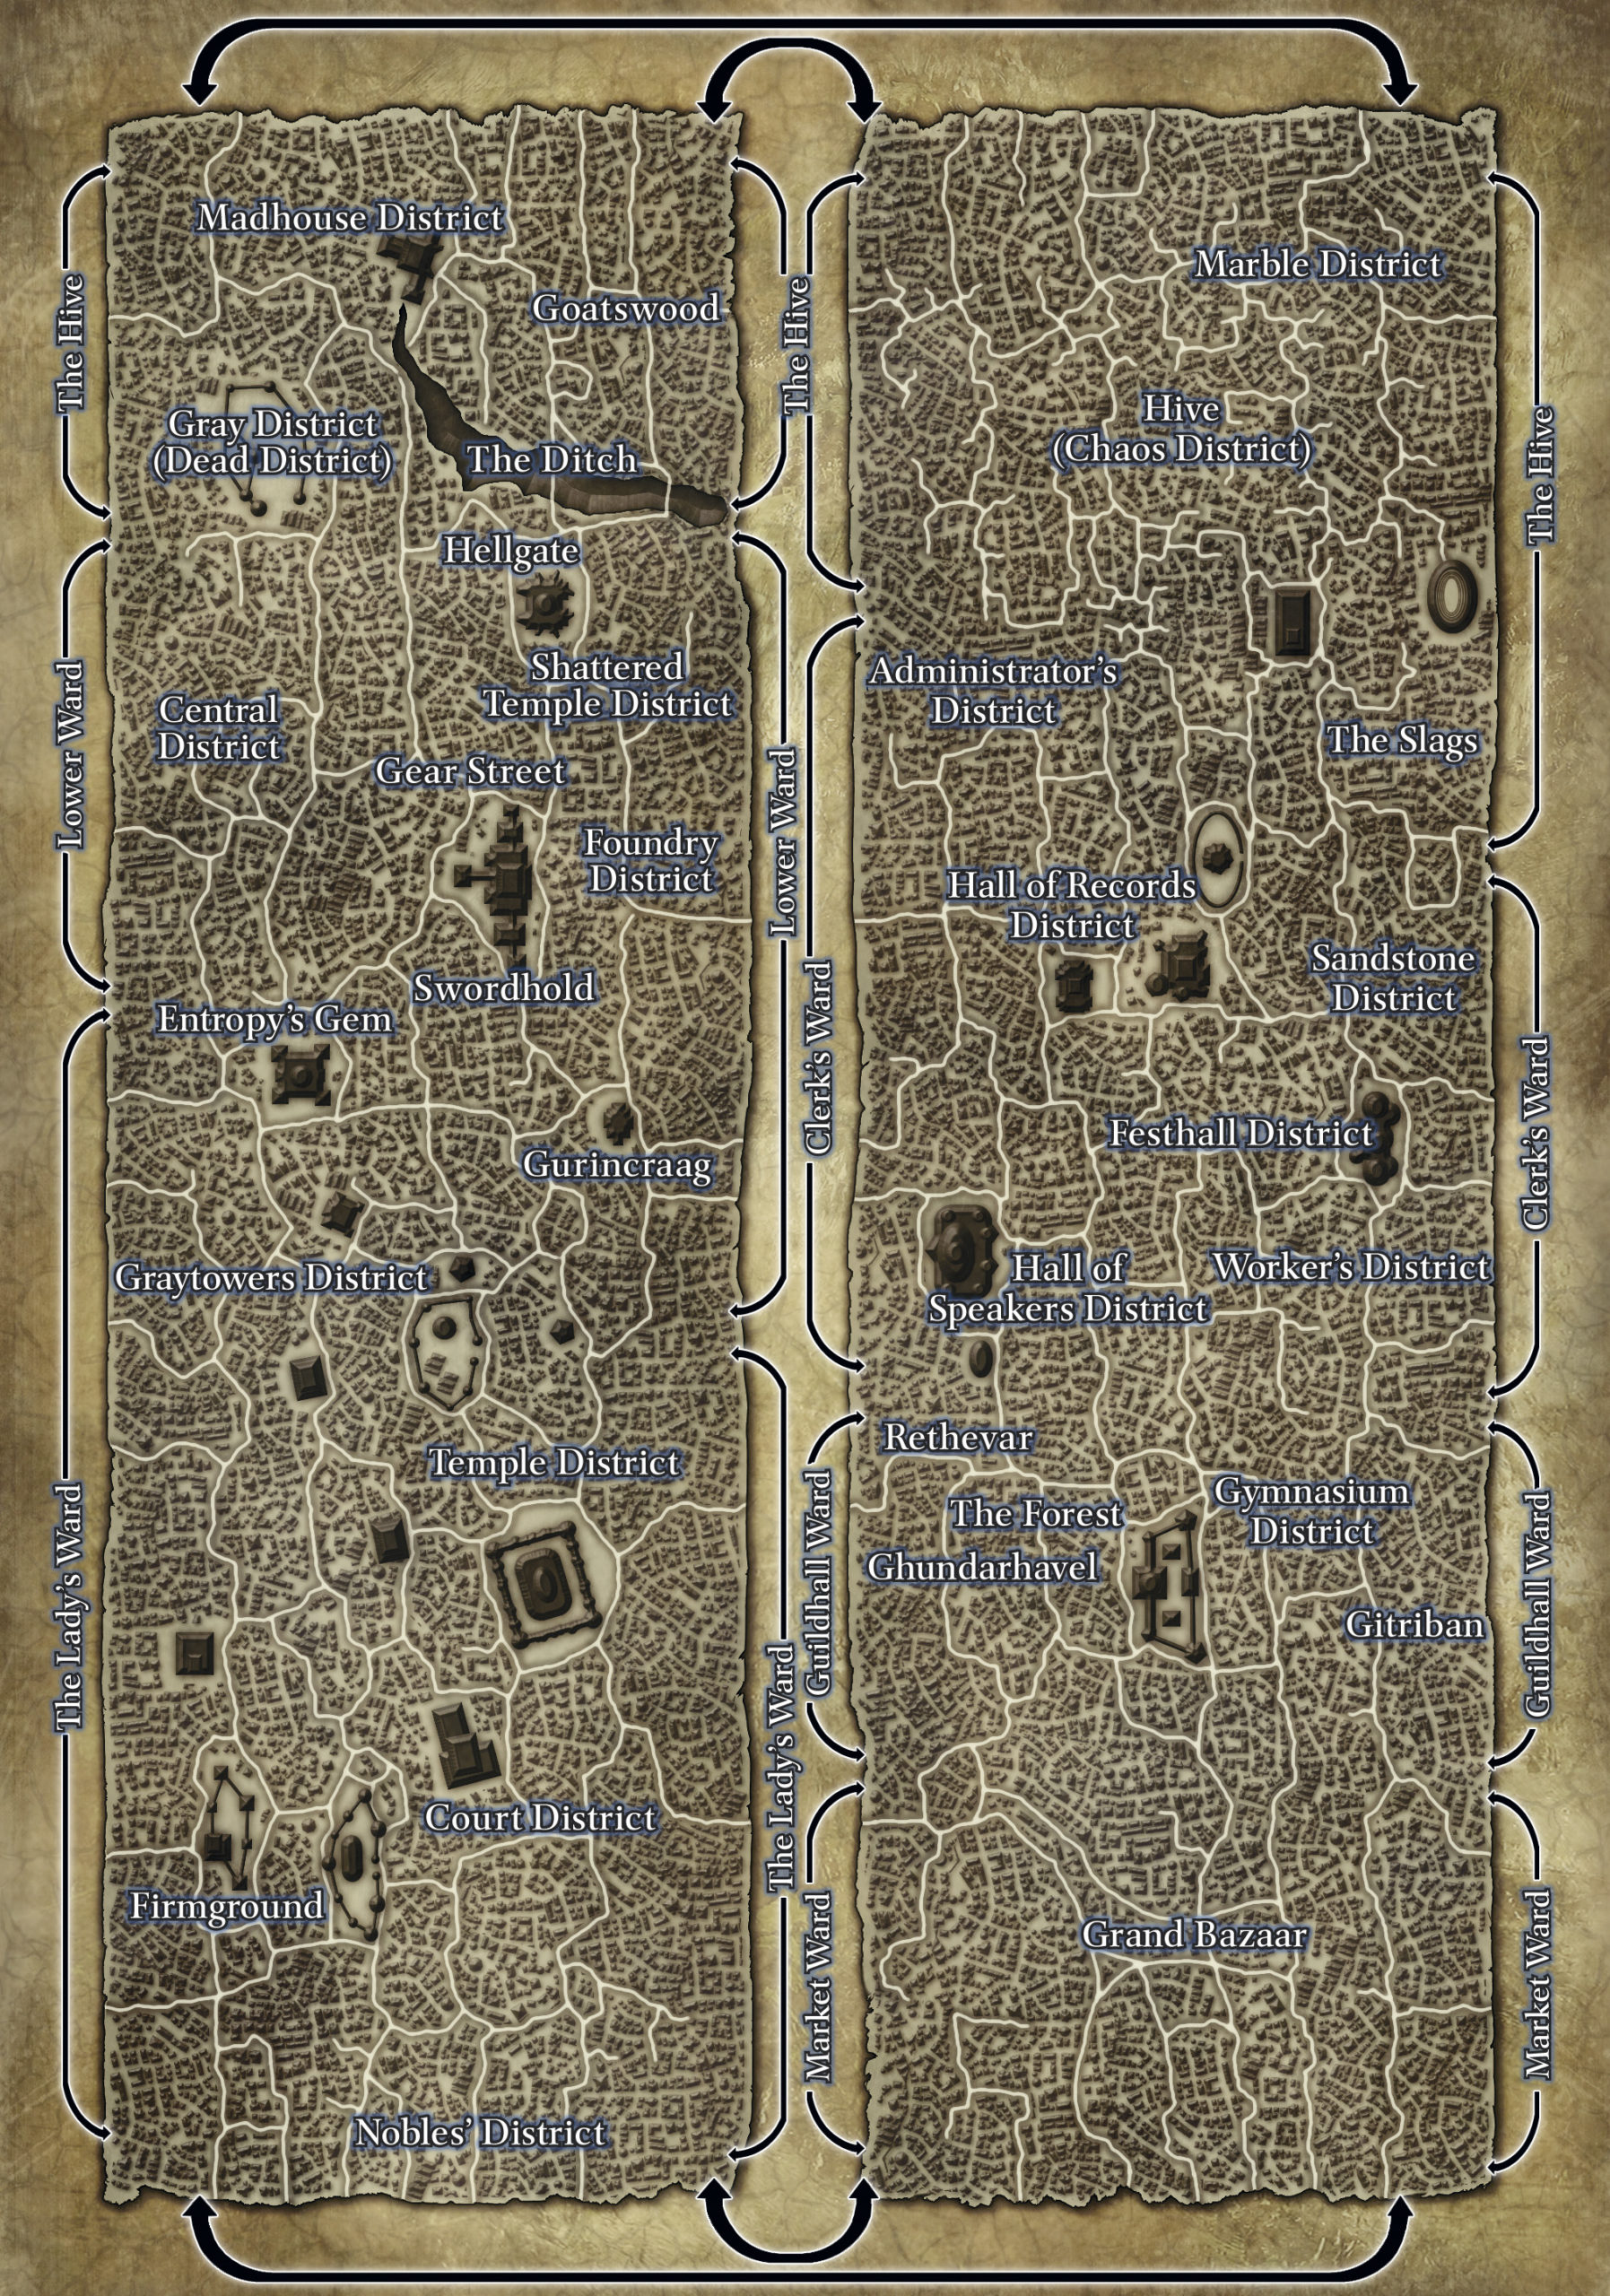 Madhouse District
Goatswood
The Hive
Gray District
(Dead District)
The Ditch
Hellgate
Shattered
Temple District
Central
District
Gear Street
Lower Ward
Foundry
District
Swordhold
Entropy's Gem
Gurincraag
Graytowers District
Temple District
The Lady's Ward
Court District
Firmground
Nobles' District
The Hive
Lower Ward
The Lady's Ward
The Hive
Clerk's Ward
Guildhall Ward
Market Ward
Marble District
Hive
(Chaos District)
Administrator's
District
The Slags
Hall of Records
District
Sandstone
District
Festhall District
Hall of
Speakers District
Worker's District
Rethevar
The Forest
Gymnasium
District
Ghundarhavel
Gitriban
Grand Bazaar
The Hive
Clerk's Ward
Guildhall Ward
Market Ward